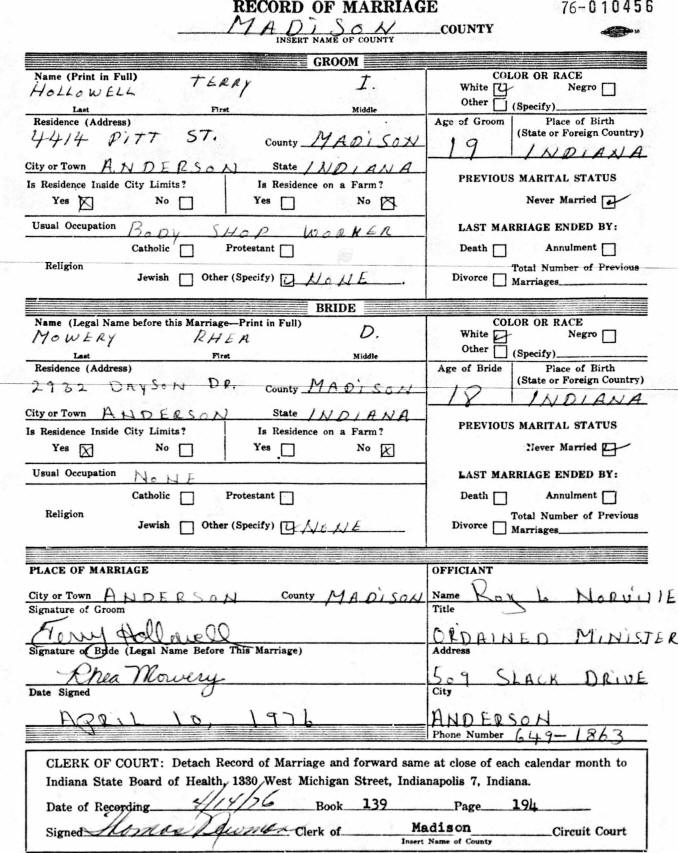 RECORD OF MARRIAGE 76-010456
MADISON COUNTY
INSERT NAME OF COUNTY
GROOM
Name (Print in Full) COLOR OR RACE
HOLLOWELL TERRY I. White Negro
Last First Middle Other (Specify)
Residence (Address) Age of Groom Place of Birth
(State or Foreign Country)
4414 PITT ST. County MADISON 19 INDIANA
City or Town ANDERSON State INDIANA
Is Residence Inside City Limits? Is Residence on a Farm? PREVIOUS MARITAL STATUS
Yes No Yes No Never Married
Usual Occupation BODY SHOP WORKER LAST MARRIAGE ENDED BY:
Catholic Protestant Death Annulment
Religion Total Number of Previous
Jewish Other (Specify) NONE. Divorce Marriages.
BRIDE
Name (Legal Name before this Marriage—Print in Full) COLOR OR RACE
MOWERY RHEA D. White Negro
Last First Middle Other (Specify)
Residence (Address) Age of Bride Place of Birth
(State or Foreign Country)
2932 DR. County MADISON 18 INDIANA
City or Town ANDERSON State INDIANA
Is Residence Inside City Limits? Is Residence on a Farm? PREVIOUS MARITAL STATUS
Yes No Yes No Never Married
Usual Occupation NONE LAST MARRIAGE ENDED BY:
Catholic Protestant Death Annulment
Religion Total Number of Previous
Jewish Other (Specify) NONE Divorce Marriages.
PLACE OF MARRIAGE OFFICIANT
City or Town ANDERSON County MADISON Name Roy L NORVILLE
Signature of Groom Title
Terry Hollowell ORDAINED MINISTER
Signature of Bride (Legal Name Before This Marriage) Address
Rhea Mowery 509 SLACK DRIVE
Date Signed City
APRIL 10, 1976 ANDERSON
Phone Number 649-1863
CLERK OF COURT: Detach Record of Marriage and forward same at close of each calendar month to
Indiana State Board of Health, 1330 West Michigan Street, Indianapolis 7, Indiana.
Date of Recording 4/14/76 Book 139 Page 194
Signed Thomas Newman Clerk of Madison Circuit Court
Insert Name of County